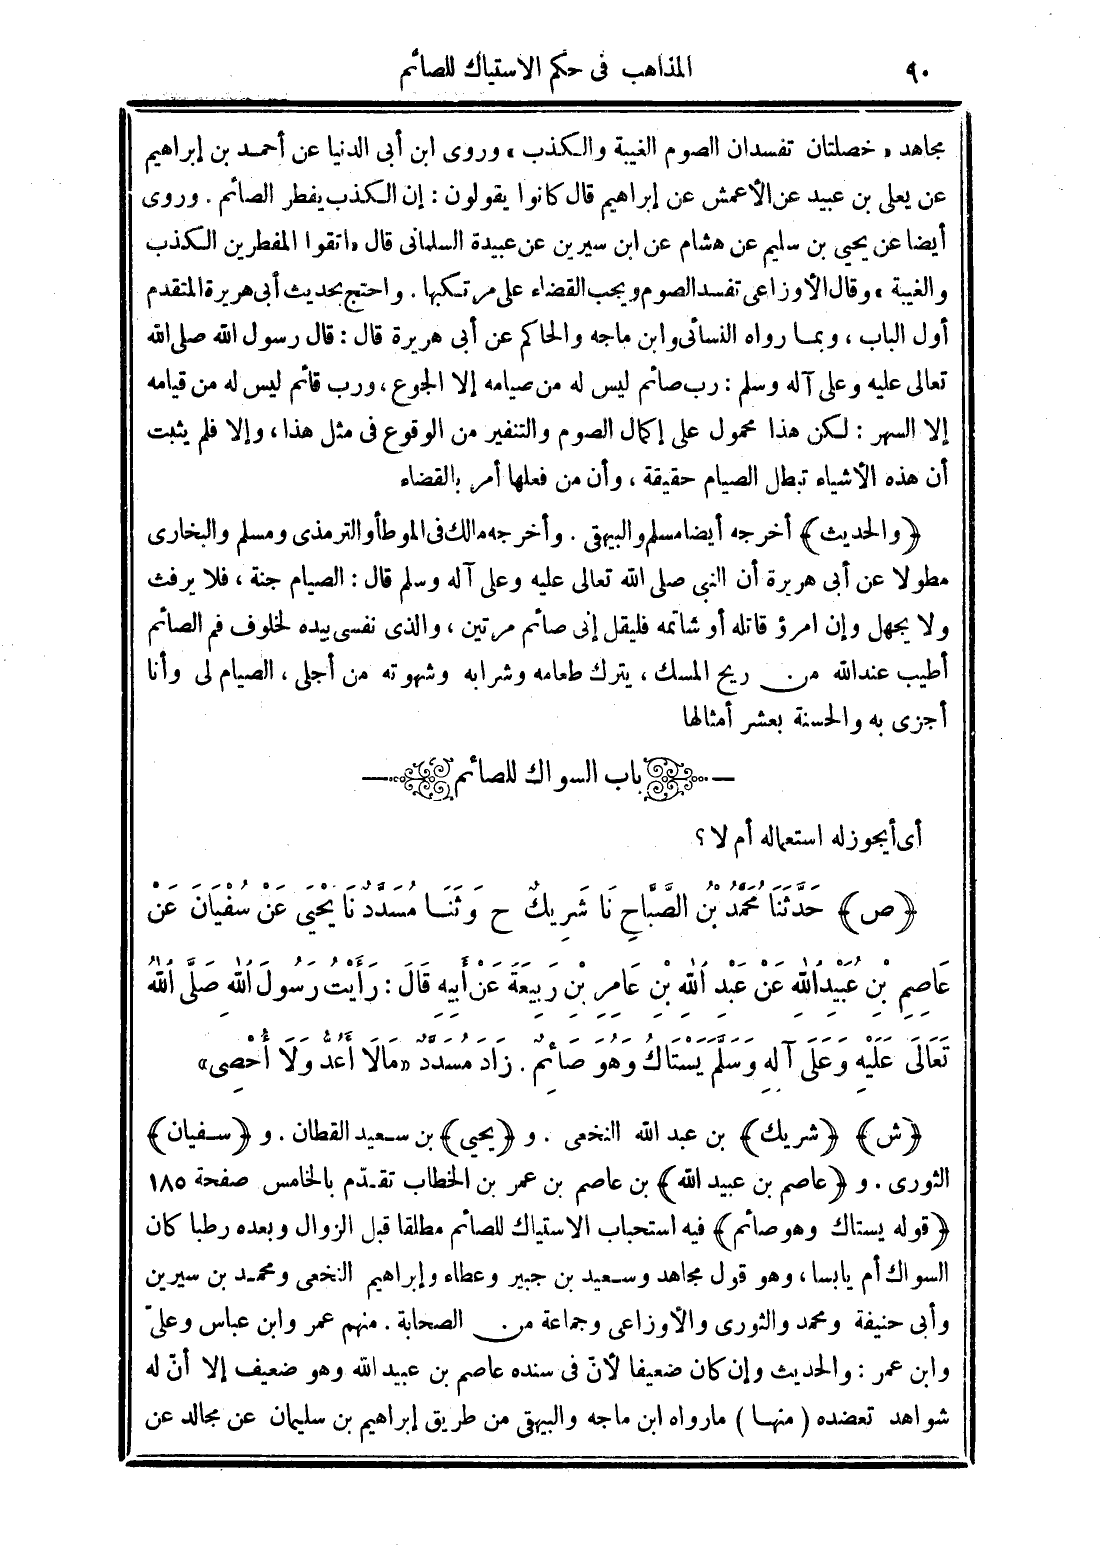 ٩٠ المذاهب فى حكم الاستياك للصائم
مجاهد «خصلتان تفسدان الصوم الغيبة والكذب» وروى ابن أبى الدنيا عن أحمد بن إبراهيم
عن يعلى بن عبيد عن الأعمش عن إبراهيم قال كانوا يقولون : إن الكذب يفطر الصائم . وروى
أيضا عن يحيى بن سليم عن هشام عن ابن سيرين عن عبيدة السلمانى قال «اتقوا المفطرين الكذب
والغيبة» وقال الأوزاعى تفسد الصوم ويجب القضاء على مرتكبها . واحتج بحديث أبى هريرة المتقدم
أول الباب ، وبما رواه النسائى وابن ماجه والحاكم عن أبى هريرة قال : قال رسول الله صلى الله
تعالى عليه وعلى آله وسلم : رب صائم ليس له من صيامه إلا الجوع ، ورب قائم ليس له من قيامه
إلا السهر : لكن هذا محمول على إكمال الصوم والتنفير من الوقوع فى مثل هذا ، وإلا فلم يثبت
أن هذه الأشياء تبطل الصيام حقيقة ، وأن من فعلها أمر بالقضاء
﴿والحديث﴾ أخرجه أيضا مسلم والبيهقى . وأخرجه مالك فى الموطأ والترمذى ومسلم والبخارى
مطولا عن أبى هريرة أن النبى صلى الله تعالى عليه وعلى آله وسلم قال : الصيام جنة ، فلا يرفث
ولا يجهل وإن امرؤ قاتله أو شاتمه فليقل إنى صائم مرتين ، والذى نفسى بيده لخلوف فم الصائم
أطيب عند الله من ريح المسك ، يترك طعامه وشرابه وشهوته من أجلى ، الصيام لى وأنا
أجزى به والحسنة بعشر أمثالها
باب السواك للصائم
أى أيجوز له استعماله أم لا ؟
﴿ص﴾ حَدَّثَنَا مُحَمَّدُ بْنُ الصَّبَّاحِ نَا شَرِيكٌ ح وَثَنَا مُسَدَّدٌ نَا يَحْيَى عَنْ سُفْيَانَ عَنْ
عَاصِمِ بْنِ عُبَيْدِ اللهِ عَنْ عَبْدِ اللهِ بْنِ عَامِرِ بْنِ رَبِيعَةَ عَنْ أَبِيهِ قَالَ : رَأَيْتُ رَسُولَ اللهِ صَلَّى اللهُ
تَعَالَى عَلَيْهِ وَعَلَى آلِهِ وَسَلَّمَ يَسْتَاكُ وَهُوَ صَائِمٌ . زَادَ مُسَدَّدٌ «مَالَا أَعُدُّ وَلَا أُحْصِى»
﴿ش﴾ ﴿شريك﴾ بن عبد الله النخعى . و ﴿يحيى﴾ بن سعيد القطان . و ﴿سفيان﴾
الثورى . و ﴿عاصم بن عبيد الله﴾ بن عاصم بن عمر بن الخطاب تقدّم بالخامس صفحة ١٨٥
﴿قوله يستاك وهو صائم﴾ فيه استحباب الاستياك للصائم مطلقا قبل الزوال وبعده رطبا كان
السواك أم يابسا ، وهو قول مجاهد وسعيد بن جبير وعطاء وإبراهيم النخعى ومحمد بن سيرين
وأبى حنيفة ومحمد والثورى والأوزاعى وجماعة من الصحابة . منهم عمر وابن عباس وعلىّ
وابن عمر : والحديث وإن كان ضعيفا لأنّ فى سنده عاصم بن عبيد الله وهو ضعيف إلا أنّ له
شواهد تعضده ( منها ) مارواه ابن ماجه والبيهقى من طريق إبراهيم بن سليمان عن مجالد عن